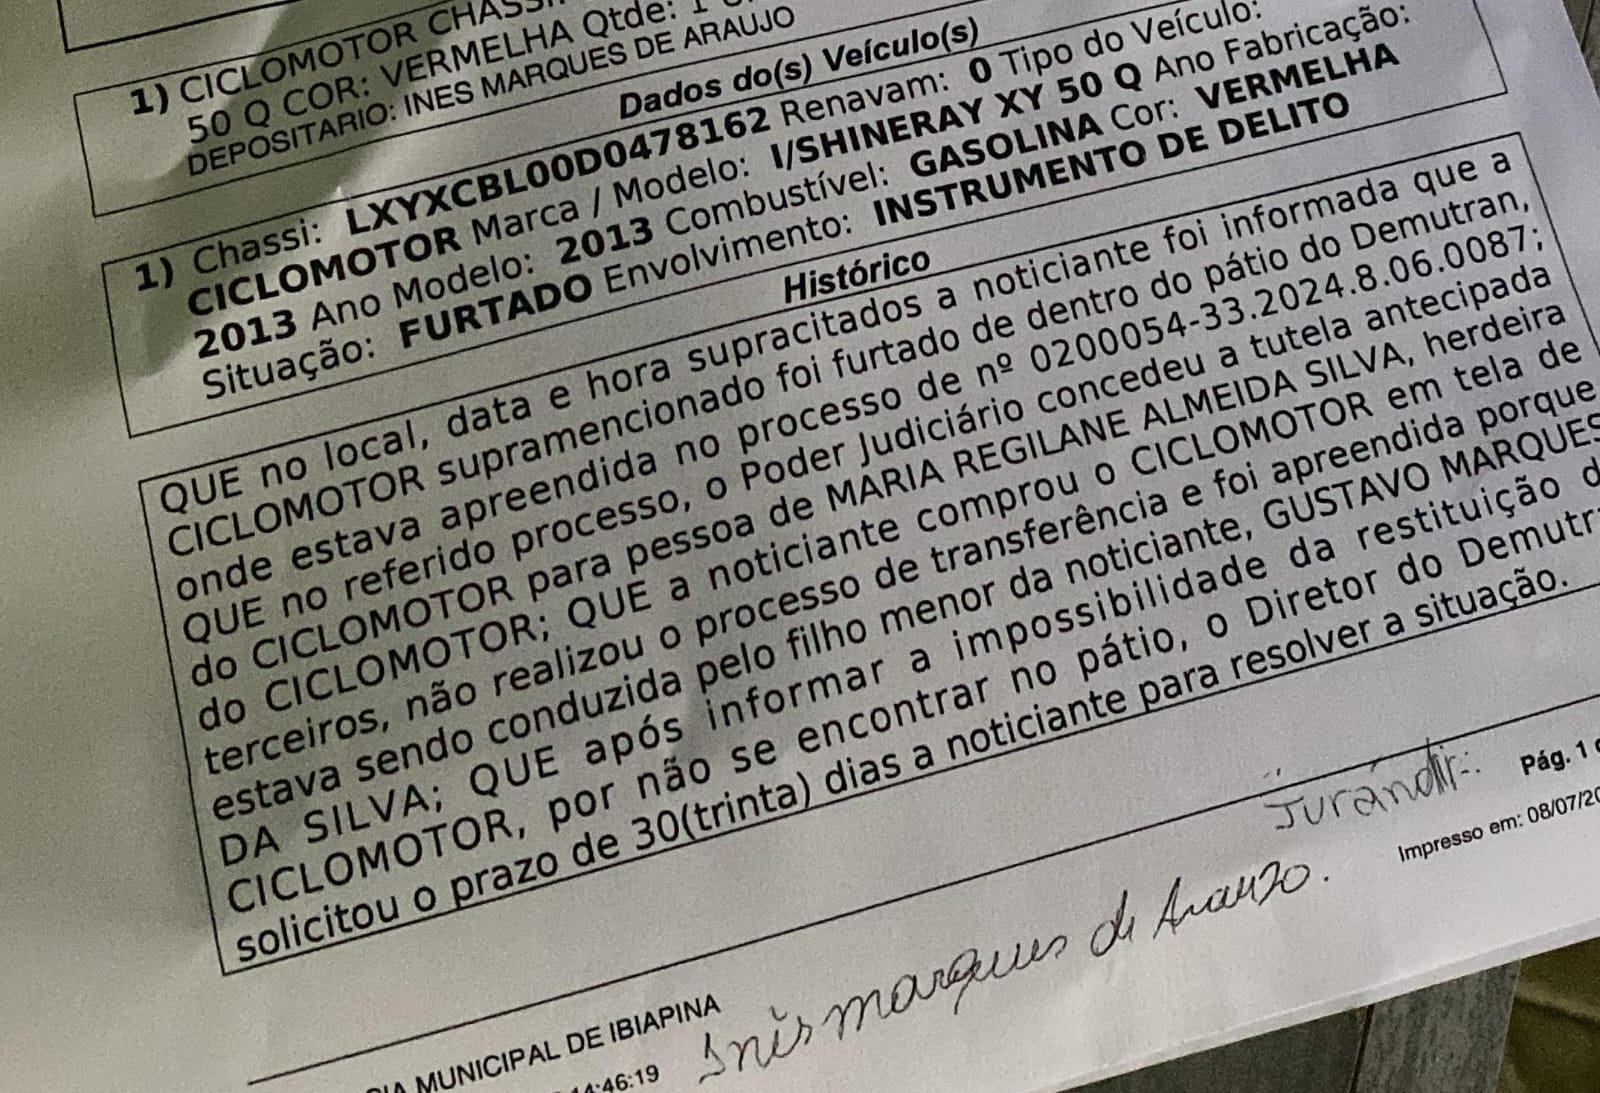 1) CICLOMOTOR CHASSI
50 Q COR: VERMELHA Qtde: 1
DEPOSITARIO: INES MARQUES DE ARAUJO
Dados do(s) Veículo(s)
1) Chassi: LXYXCBL00D0478162 Renavam: 0 Tipo do Veículo:
CICLOMOTOR Marca / Modelo: I/SHINERAY XY 50 Q Ano Fabricação:
2013 Ano Modelo: 2013 Combustível: GASOLINA Cor: VERMELHA
Situação: FURTADO Envolvimento: INSTRUMENTO DE DELITO
Histórico
QUE no local, data e hora supracitados a noticiante foi informada que a
CICLOMOTOR supramencionado foi furtado de dentro do pátio do Demutran,
onde estava apreendida no processo de nº 0200054-33.2024.8.06.0087;
QUE no referido processo, o Poder Judiciário concedeu a tutela antecipada
do CICLOMOTOR para pessoa de MARIA REGILANE ALMEIDA SILVA, herdeira
do CICLOMOTOR; QUE a noticiante comprou o CICLOMOTOR em tela de
terceiros, não realizou o processo de transferência e foi apreendida porque
estava sendo conduzida pelo filho menor da noticiante, GUSTAVO MARQUES
DA SILVA; QUE após informar a impossibilidade da restituição d
CICLOMOTOR, por não se encontrar no pátio, o Diretor do Demutr
solicitou o prazo de 30(trinta) dias a noticiante para resolver a situação.
Jurandir
Pág. 1
Impresso em: 08/07/20
Inês marques de Araujo.
MUNICIPAL DE IBIAPINA
:46:19